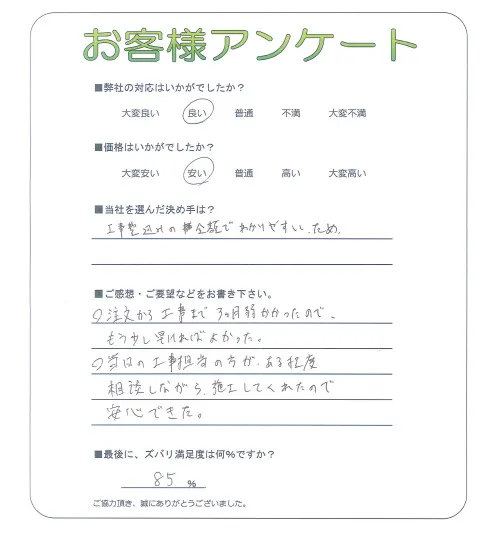 お客様アンケート
■弊社の対応はいかがでしたか？
大変良い 良い 普通 不満 大変不満
■価格はいかがでしたか？
大変安い 安い 普通 高い 大変高い
■当社を選んだ決め手は？
工事費込みの金額でわかりやすい、ため、
■ご感想・ご要望などをお書き下さい。
○注文から工事まで3ヶ月弱かかったので、
もう少し早ければよかった。
○当日の工事担当の方が、ある程度
相談しながら、施工してくれたので
安心できた。
■最後に、ズバリ満足度は何%ですか？
85 %
ご協力頂き、誠にありがとうございました。